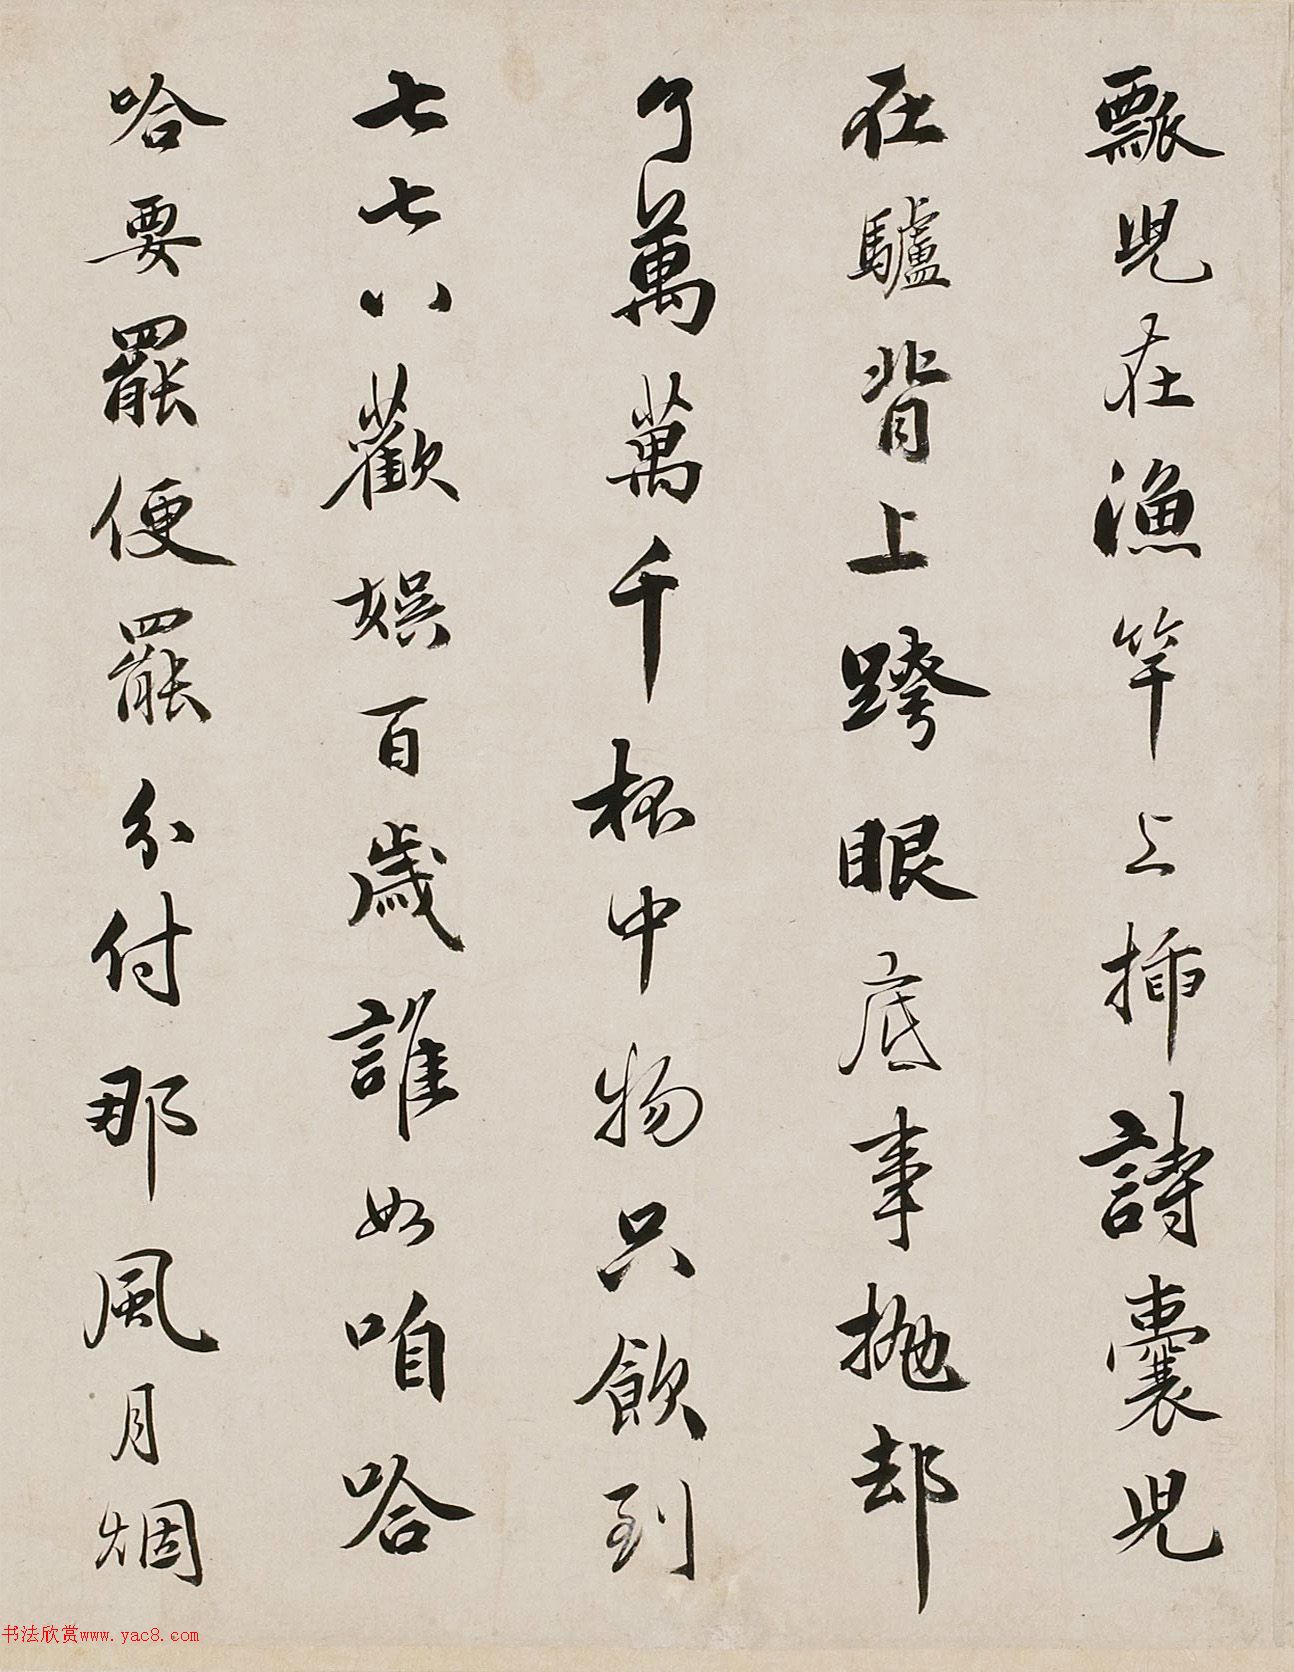 瓢兒在漁竿上插詩囊兒
在驢背上跨眼底事拋却
了萬萬千杯中物只飲到
七七八歡娛百歲誰如咱哈
哈要罷便罷分付那風月烟
书法欣赏www.yac8.com